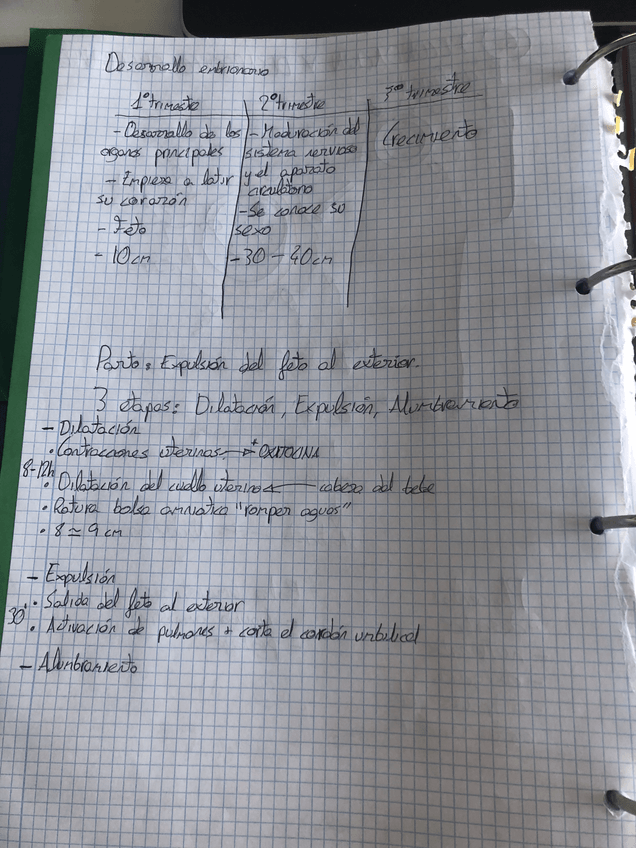 Desarrollo embrionario
1º trimestre
- Desarrollo de los
organos principales
- Empieza a latir
su corazón
- Feto
- 10 cm
2º trimestre
- Maduración del
sistema nervioso
y el aparato
circulatorio
- Se conoce su
sexo
- 30 - 40 cm
3º trimestre
Crecimiento
Parto: Expulsión del feto al exterior.
3 etapas: Dilatación, Expulsión, Alumbramiento
- Dilatación
• Contracciones uterinas → + OXITOCINA
8-12h
• Dilatación del cuello uterino ← cabeza del bebe
• Rotura bolsa amniotica "romper aguas"
• 8 ≃ 9 cm
- Expulsión
• Salida del feto al exterior
30'
• Activación de pulmones + corta el cordón umbilical
- Alumbramiento